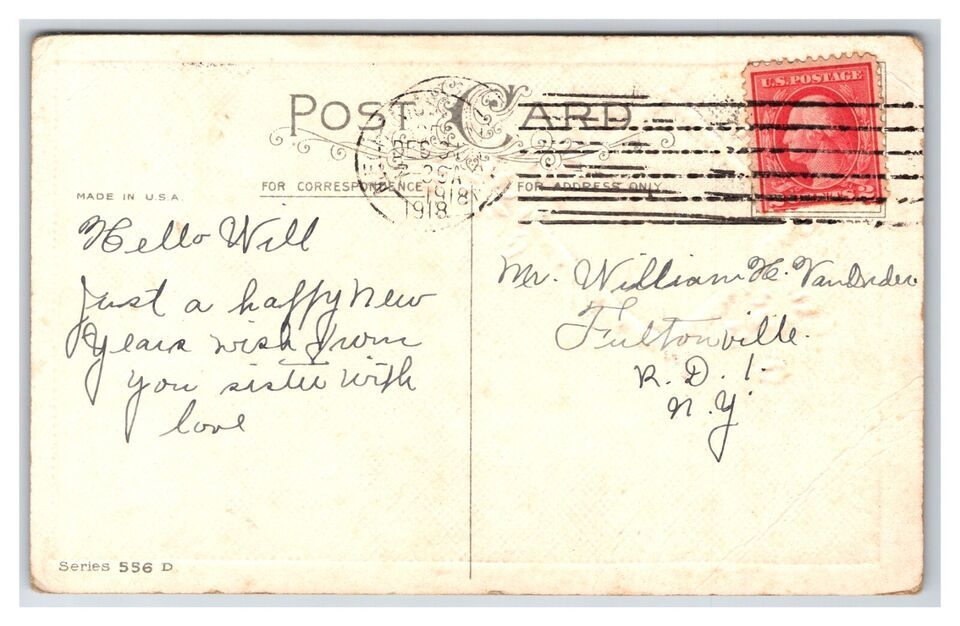 POST CARD
U.S. POSTAGE
DEC 3
1918
1918
MADE IN U.S.A.
FOR CORRESPONDENCE
FOR ADDRESS ONLY
CENTS 2
Hello Will
Just a happy New
Years wish from
you sister with
love
Mr. William H.
Fultonville.
R. D. 1.
N. Y.
Series 556 D